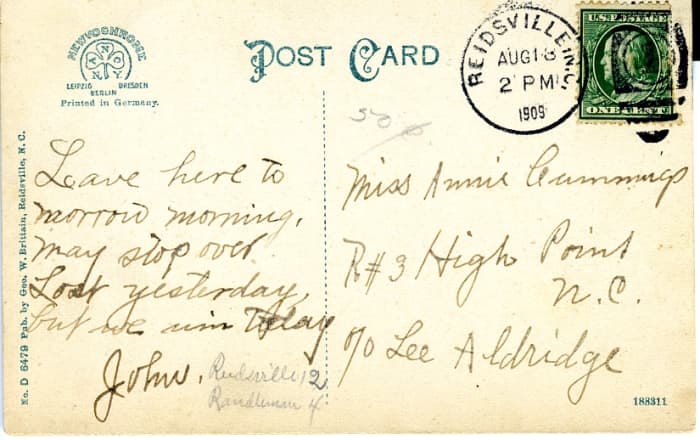 NEWVOCHROME
A N C O N Y
LEIPZIG DRESDEN
BERLIN
Printed in Germany.
POST CARD
REIDSVILLE, N.C.
AUG 18
2 PM
1909
U.S. POSTAGE
ONE CENT
50
Leave here to
morrow morning,
may stop over.
Lost yesterday,
but we win today
John.
Reidsville 12
Randleman 4
Miss Annie Cummings
R#3 High Point
N.C.
c/o Lee Aldridge
No. D 6479 Pub. by Geo. W. Brittain, Reidsville, N. C.
188311